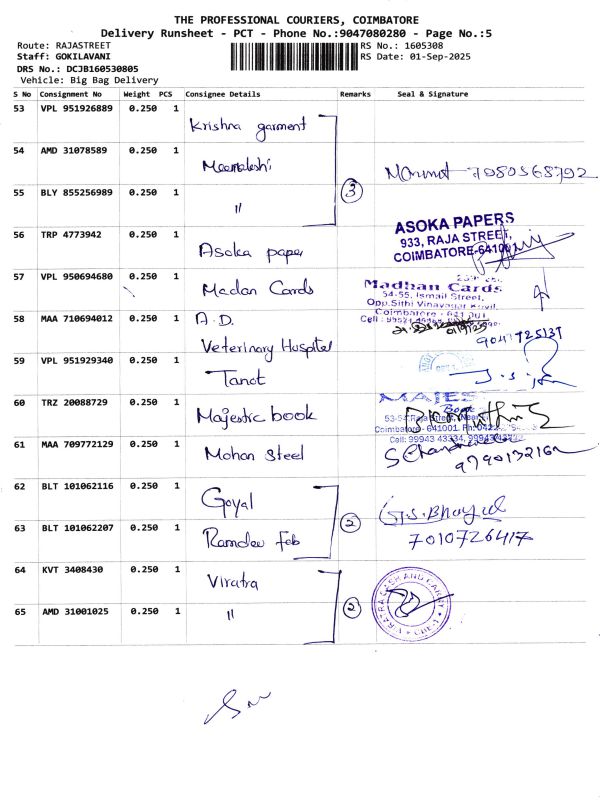 THE PROFESSIONAL COURIERS, COIMBATORE
Delivery Runsheet - PCT - Phone No.:9047080280 - Page No.:5
Route: RAJASTREET RS No.: 1605308
Staff: GOKILAVANI RS Date: 01-Sep-2025
DRS No.: DCJB160530805
Vehicle: Big Bag Delivery
S No Consignment No Weight PCS Consignee Details Remarks Seal & Signature
53 VPL 951926889 0.250 1
Krishna garment
54 AMD 31078589 0.250 1
Meenakshi
7080568792
55 BLY 855256989 0.250 1
"
3
56 TRP 4773942 0.250 1
Asoka paper
ASOKA PAPERS
933, RAJA STREET,
COIMBATORE-641001
57 VPL 950694680 0.250 1
Madan Cards
Madhan Cards
54-55, Ismail Street,
Opp.Sithi Vinayagar Kovil,
Coimbatore - 641 001
Cell :
58 MAA 710694012 0.250 1
A.D.
Veterinary Hospital
9047725137
59 VPL 951929340 0.250 1
Tanot
60 TRZ 20088729 0.250 1
Majestic book
MAJES
Book
Coimbatore - 641001. Ph: 0422
Cell: 99943 43334,
61 MAA 709772129 0.250 1
Mohan Steel
9790132162
62 BLT 101062116 0.250 1
Goyal
63 BLT 101062207 0.250 1
Ramdev Feb
2
G.S. Bhayul
7010726417
64 KVT 3408430 0.250 1
Viratra
65 AMD 31001025 0.250 1
"
2
VIRATRA CASH AND CARRY